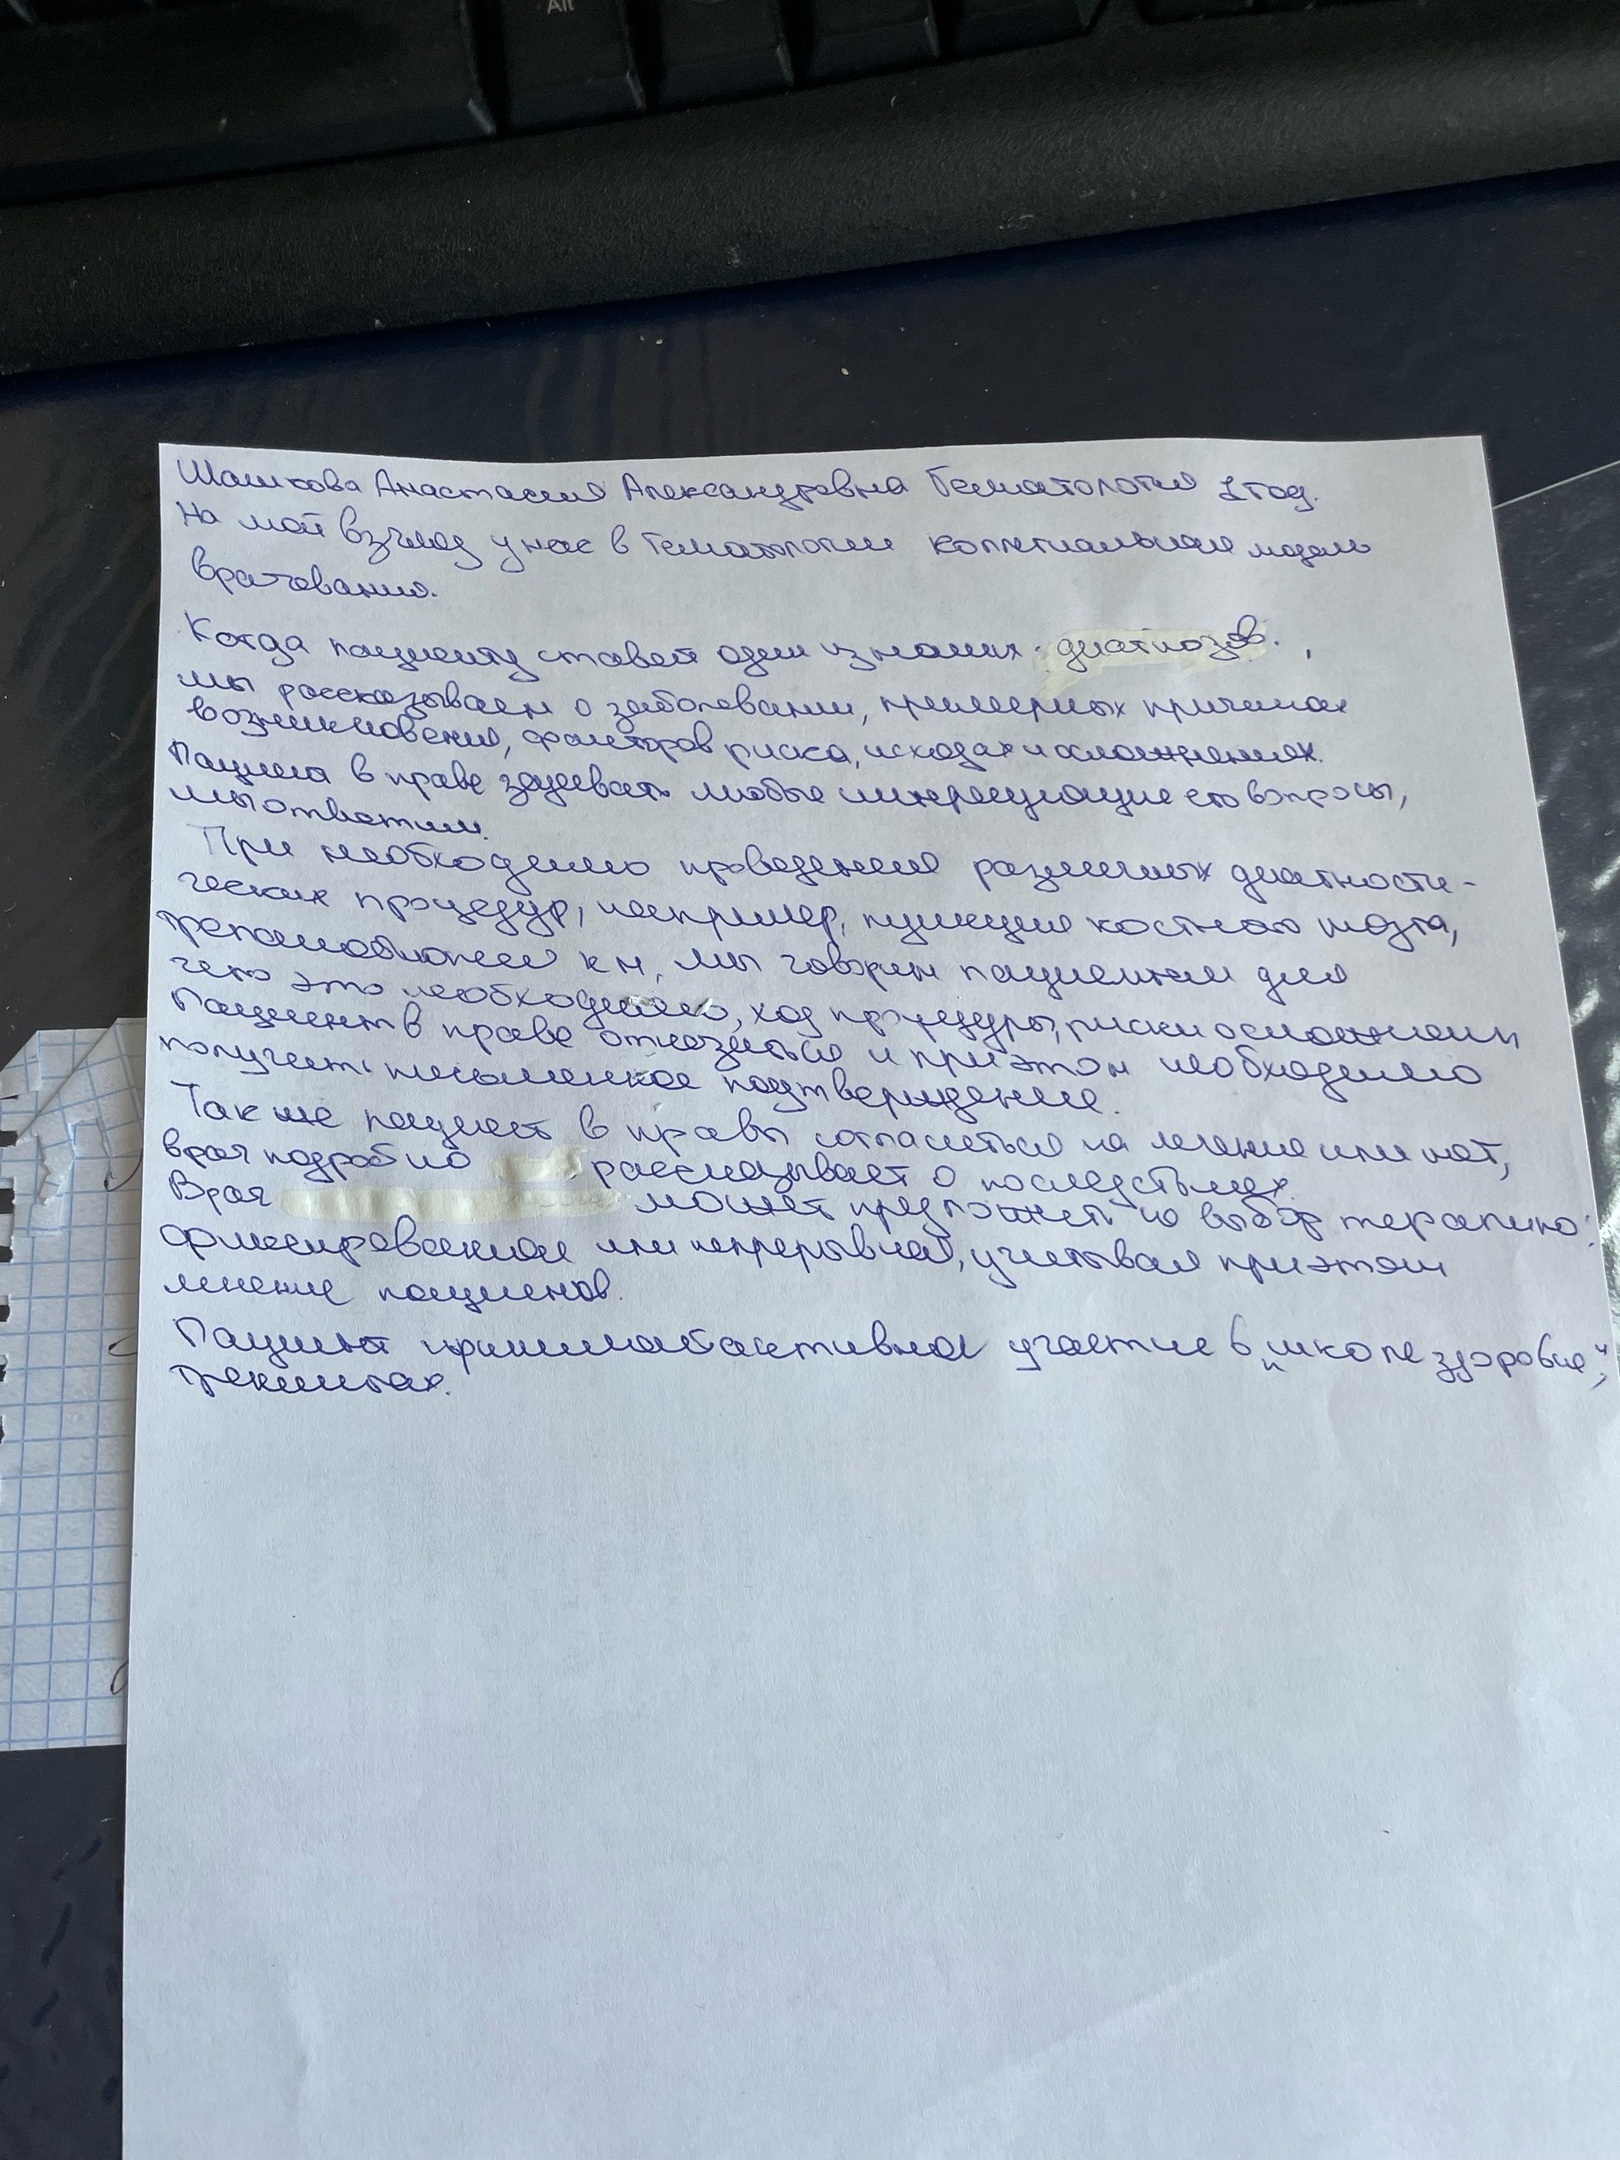 Alt
Шашкова Анастасия Александровна Гематология 1 год.
На мой взгляд у нас в гематологии коллегиальная модель
врачевания.
Когда пациенту ставят один из наших диагнозов,
мы рассказываем о заболевании, примерных причинах
возникновения, факторов риска, исходах и осложнениях.
Пациент в праве задавать любые интересующие его вопросы,
мы ответим.
При необходимо проведения различных диагности-
ческих процедур, например, пункция костного мозга,
трепанобиопсия км, мы говорим пациентам для
чего это необходимо, ход процедуры, риски осложнении
Пациент в праве отказаться и при этом необходимо
получить письменное подтверждение.
Так же пациент в праве согласиться на лечение или нет,
врач подробно рассказывает о последствиях.
Врач может предложить на выбор терапию:
фиксированная или непрерывная, учитывая при этом
мнение пациентов.
Пациент принимает активное участие в "школе здоровья",
тренингах.